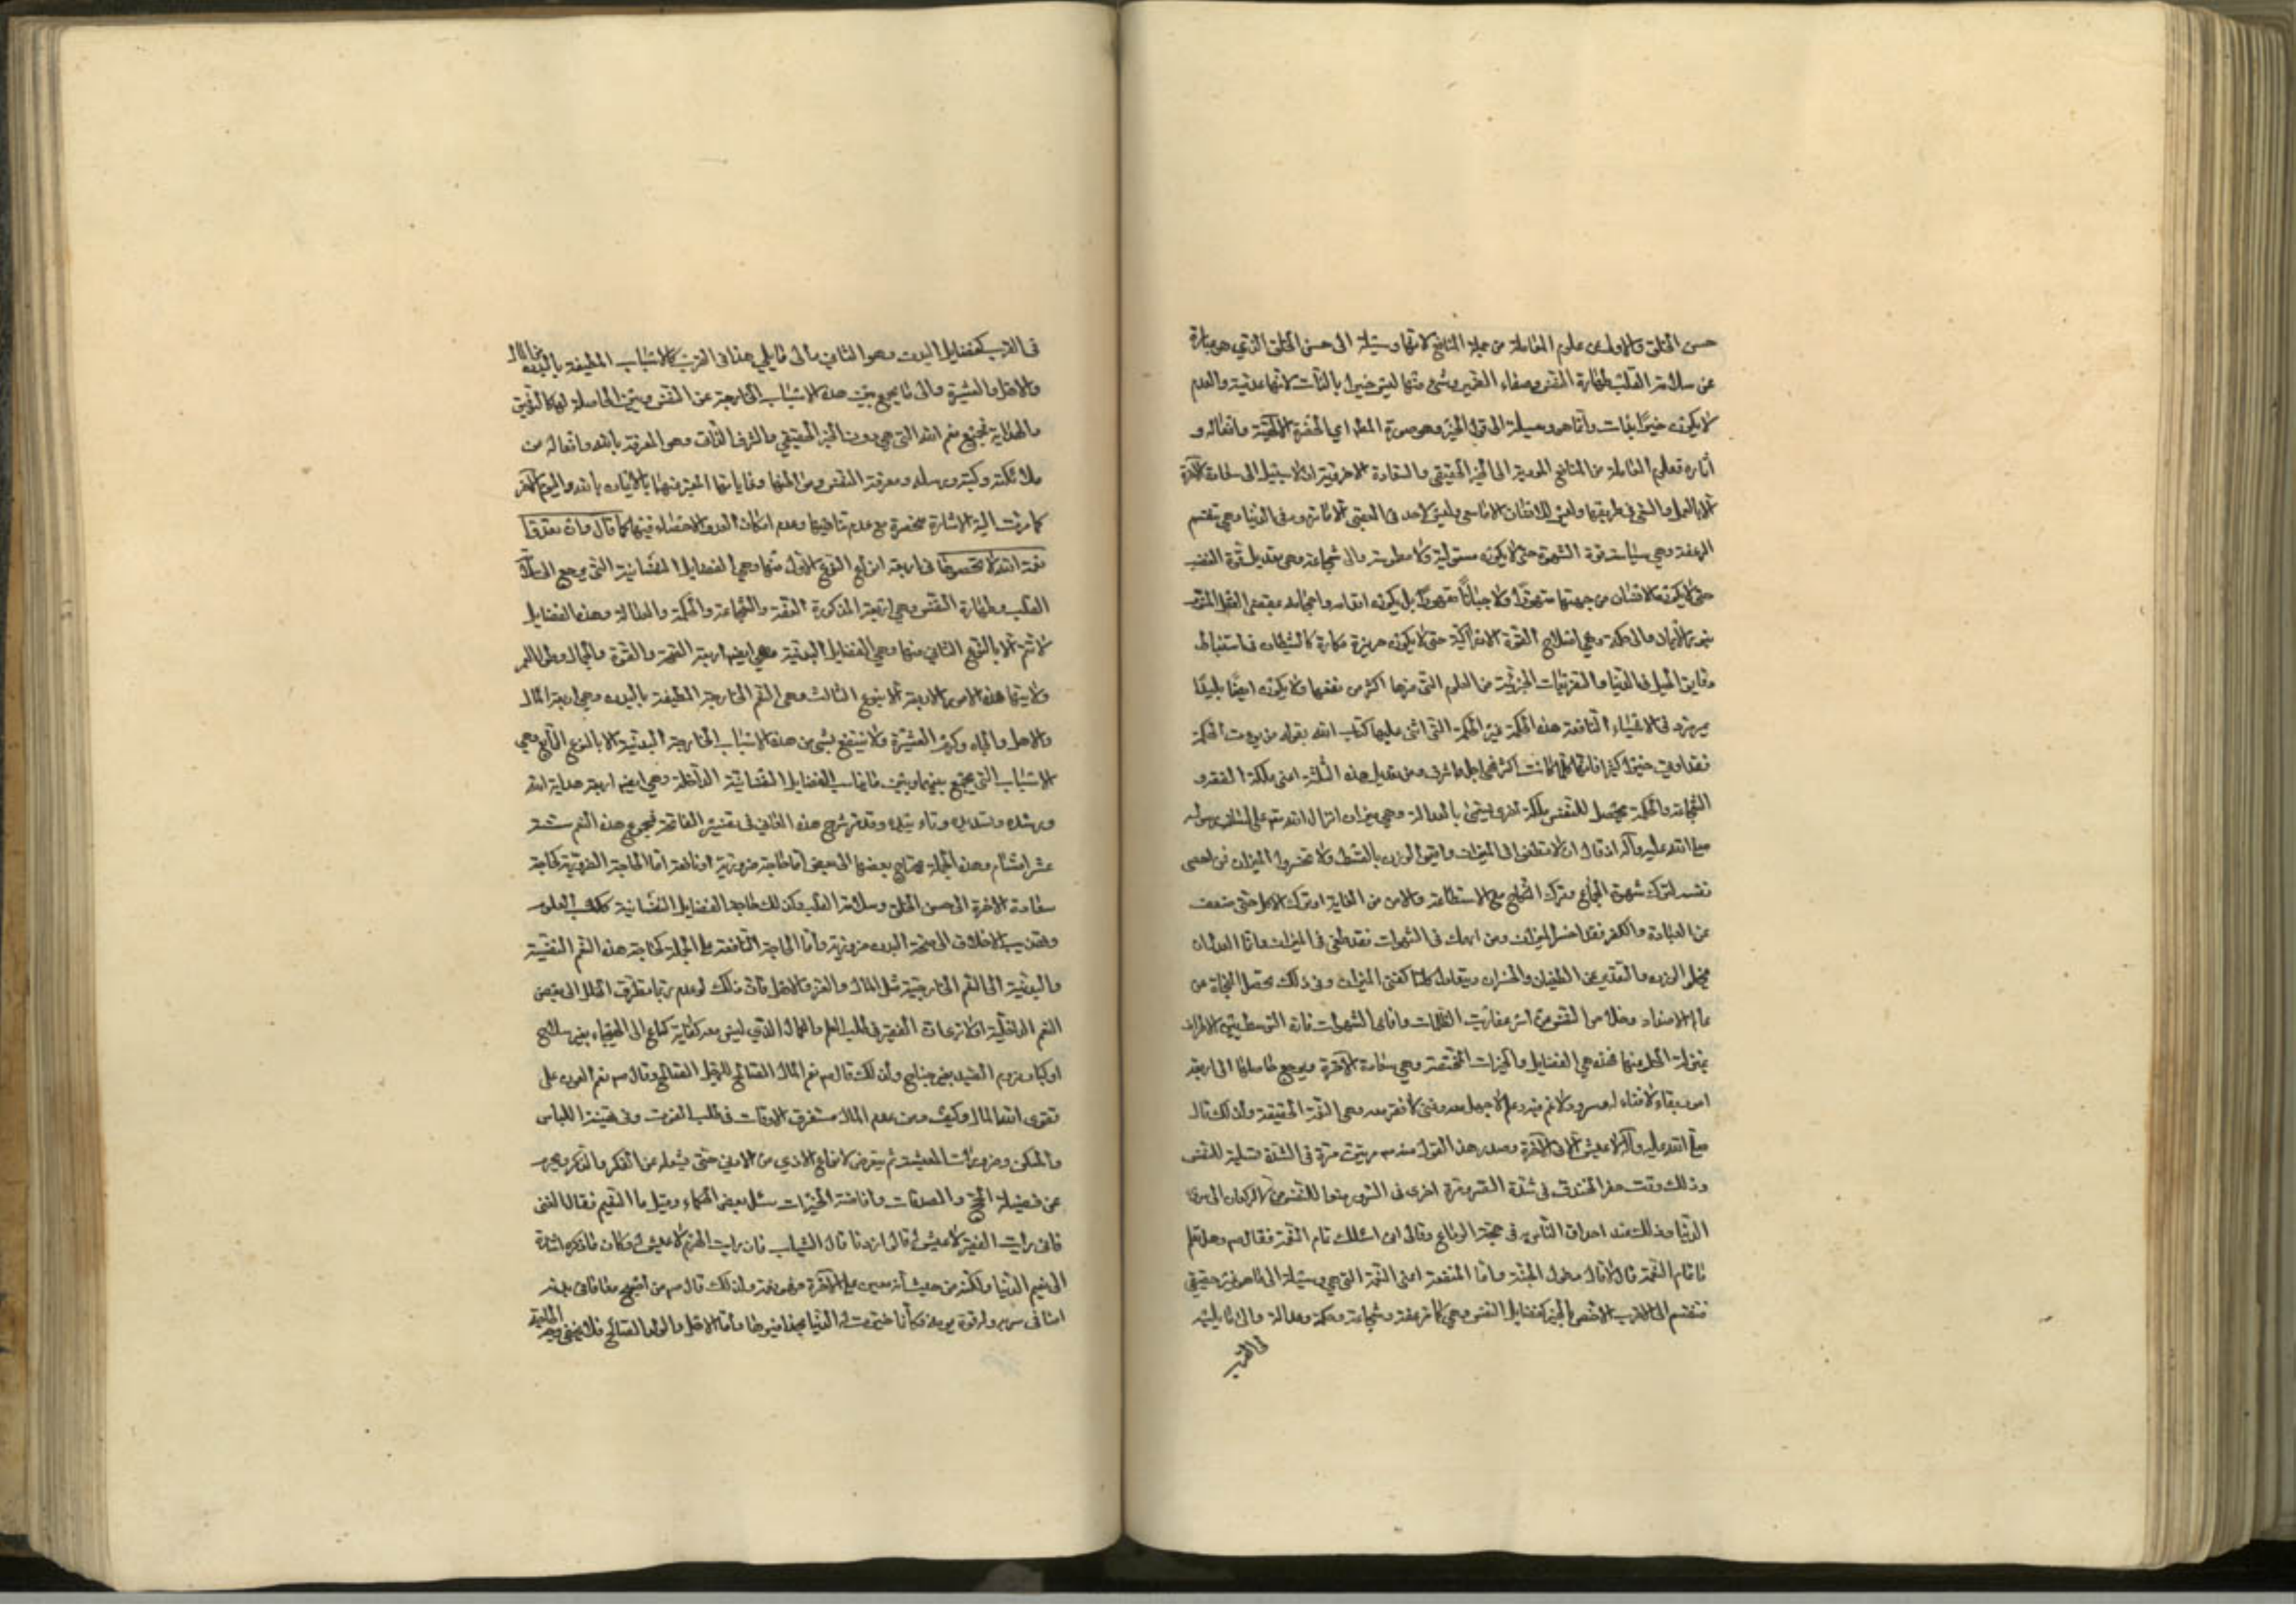 حسن الخلق والاولى علوم المعاملة من جملة المنافع لانها وسيلة الى حسن الخلق الذي هو عبارة
عن سلامة القلب وطهارة النفس وصفاء الضمير وشئ منها ليس خيرا بالذات لانها عدمية والعدم
لا يكون خيرا بذات وانما هو وسيلة الى قبول الخير وهو صورة المعلم اي الحضرة الالهية وافعاله و
آثاره فعلم المعاملة من المنافع المودية الى الخير الحقيقي والسعادة الاخروية اذ لا سبيل الى سعادة الآخرة
الا بالعمل والسعي في طريقها وليس للانسان الا ما سعى وليس لاحد في العقبى الا ما تزود من الدنيا وهي تنقسم
الى عفة وهي سياسة قوة الشهوة حتى لا يكون مستولية ولا مطموسة والى شجاعة وهي تعديل قوة الغضب
حتى لا يكون الانسان من جهتها متهورا ولا جبانا مقهورا بل يكون اقدامه واحجامه بمقتضى العقل المنور
بنور الايمان والى حكمة وهي اصلاح القوة الادراكية حتى لا يكون جربزة مكارة كالشيطان في استنباط
دقايق الحيل في الدنيا والتفريعات الجزئية من العلوم التي ضرها اكثر من نفعها ولا يكون ايضا بليدا
في الاشياء النافعة هذه الحكمة غير الحكمة التي اثنى عليها كتاب الله بقوله من يؤت الحكمة
فقد اوتي خيرا كثيرا فانها كلما كانت اكثر فهي اجل واشرف ومن تعديل هذه الثلثة اعني ملكة العفة و
الشجاعة والحكمة يحصل للنفس ملكة اخرى يسمى بالعدالة وهي ميزان انزل الله تعالى على لسان رسوله
صلى الله عليه وآله اذ قال ان لا تطغوا في الميزان واقيموا الوزن بالقسط ولا تخسروا الميزان فمن خصى
نفسه لترك شهوة الجماع وترك النكاح مع الاستطاعة والامن من الغاية او ترك الاكل حتى ضعف
عن العبادة والفكر فقد اخسر الميزان ومن انهمك في الشهوات فقد طغى في الميزان وانما العدل ان
يخلو الوزن والتقدير عن الطغيان والخسران ويتعادل كلتا كفتي الميزان وفي ذلك يحصل النجاة من
عالم الاضداد وخلاص النفس من اسر مقارنة الظلمات وافاعي الشهوات فان التوسط بين الاطراف
بمنزلة الخلو منها فهذه هي الفضايل والخيرات المختصة وهي سعادة الآخرة ويرجع حاصلها الى اربعة
امور بقاء لا فناء له وسرور لا غم فيه وعلم لا جهل معه وغنى لا فقر معه وهي النعمة الحقيقية ولذلك قال
صلى الله عليه وآله لا عيش الا عيش الآخرة وصدر هذا القول منه مرتين مرة في الشدة تسلية للنفس
وذلك وقت حفر الخندق في شدة الضر ومرة اخرى في السرور منعا للنفس من الركون الى سرور
الدنيا وذلك عند احداق الناس به في حجة الوداع وقال اني اسئلك تمام النعمة فقال وهل تعلم
ما تمام النعمة قال لا قال دخول الجنة واما المنفعة اعني النعمة التي هي وسيلة الى ما هو خير حقيقي
فتنقسم الى الاقرب الاخص بالخير كفضايل النفس وهي كما مر عفة وشجاعة وحكمة وعدالة والى ما يليه
في القرب
في القرب كفضايل البدن وهو الثاني والى ما يلي هذا في القرب كالاسباب المطيفة بالبدن من المال
والاهل والعشيرة والى ما يجمع بين هذه الاسباب الخارجة عن النفس وبين الحاصلة لها كالتوفيق
والهداية فجميع نعم الله التي هي دون الخير الحقيقي والشرف الذات وهو المعرفة بالله وافعاله من
ملائكته وكتبه ورسله ومعرفة النفس ومن الهها وغاياتها المعبر عنها بالايمان بالله واليوم الآخر
كما مرت اليه الاشارة منحصرة مع عدم تناهيها وعدم امكان العد والاحصاء فيها كما قال وان تعدوا
نعمة الله لا تحصوها في اربعة انواع النوع الاول منها وهي الفضايل النفسانية التي يرجع الى سلامة
القلب وطهارة النفس وهي اربعة المذكورة العفة والشجاعة والحكمة والعدالة وهذه الفضايل
لا تتم الا بالنوع الثاني منها وهي الفضايل البدنية وهي ايضا اربعة الصحة والقوة والجمال وطول العمر
ولا يتهيأ هذه الامور الاربعة الا بنوع الثالث وهي النعم الخارجة المطيفة بالبدن وهي اربعة المال
والاهل والجاه وكرم العشيرة ولا ينتفع بشئ من هذه الاسباب الخارجة البدنية الا بالنوع الرابع وهي
الاسباب التي يجمع بينها وبين ما يناسب الفضايل النفسانية الداخلة وهي ايضا اربعة هداية الله
ورشده وتسديده وتأييده وقد مر شرح هذه المعاني في تفسير الفاتحة فمجموع هذه النعم ستة
عشر اقسام وهذه الجملة يحتاج بعضها الى بعض اما حاجة ضرورية او نافعة اما الحاجة الضرورية كحاجة
سعادة الآخرة الى حسن الخلق وسلامة القلب وكذلك حاجة الفضايل النفسانية ككسب العلوم
وتهذيب الاخلاق الى صحة البدن ضرورية واما الحاجة النافعة على الجملة كحاجة هذه النعم النفسية
والبدنية الى النعم الخارجية مثل المال والعز والاهل فان ذلك لو عدم ربما تطرق الخلل الى بعض
النعم الداخلية اولا ترى ان الفقير في طلب العلم والكمال الذي ليس معه كفاية كساع الى الهيجاء بغير سلاح
او كباز يروم الصيد بغير جناح ولذلك قال نعم المال الصالح للرجل الصالح وقال نعم العون على
تقوى الله المال وكيف ومن عدم المال مستغرق الاوقات في طلب القوت وفي تهيئة اللباس
والمسكن وضرورات المعيشة ثم يتعرض لانواع الاذى من الامور حتى يشغله عن الفكر والذكر ويحرم
عن فضيلة الحج والصدقات وافاضة الخيرات سئل بعض الحكماء وقيل ما النعيم فقال الغنى
فاني رايت الفقير لا عيش له قال زدنا قال الشباب فان رايت الهرم لا عيش له وكان ما ذكره اشارة
الى نعيم الدنيا ولكنه من حيث انه معين على الآخرة فهو نعمة ولذلك قال من اصبح معافا في بدنه
امنا في سربه وله قوة يومه فكأنما حيزت له الدنيا بحذافيرها واما الاهل والولد الصالح فلا يخفى وجه الحاجة